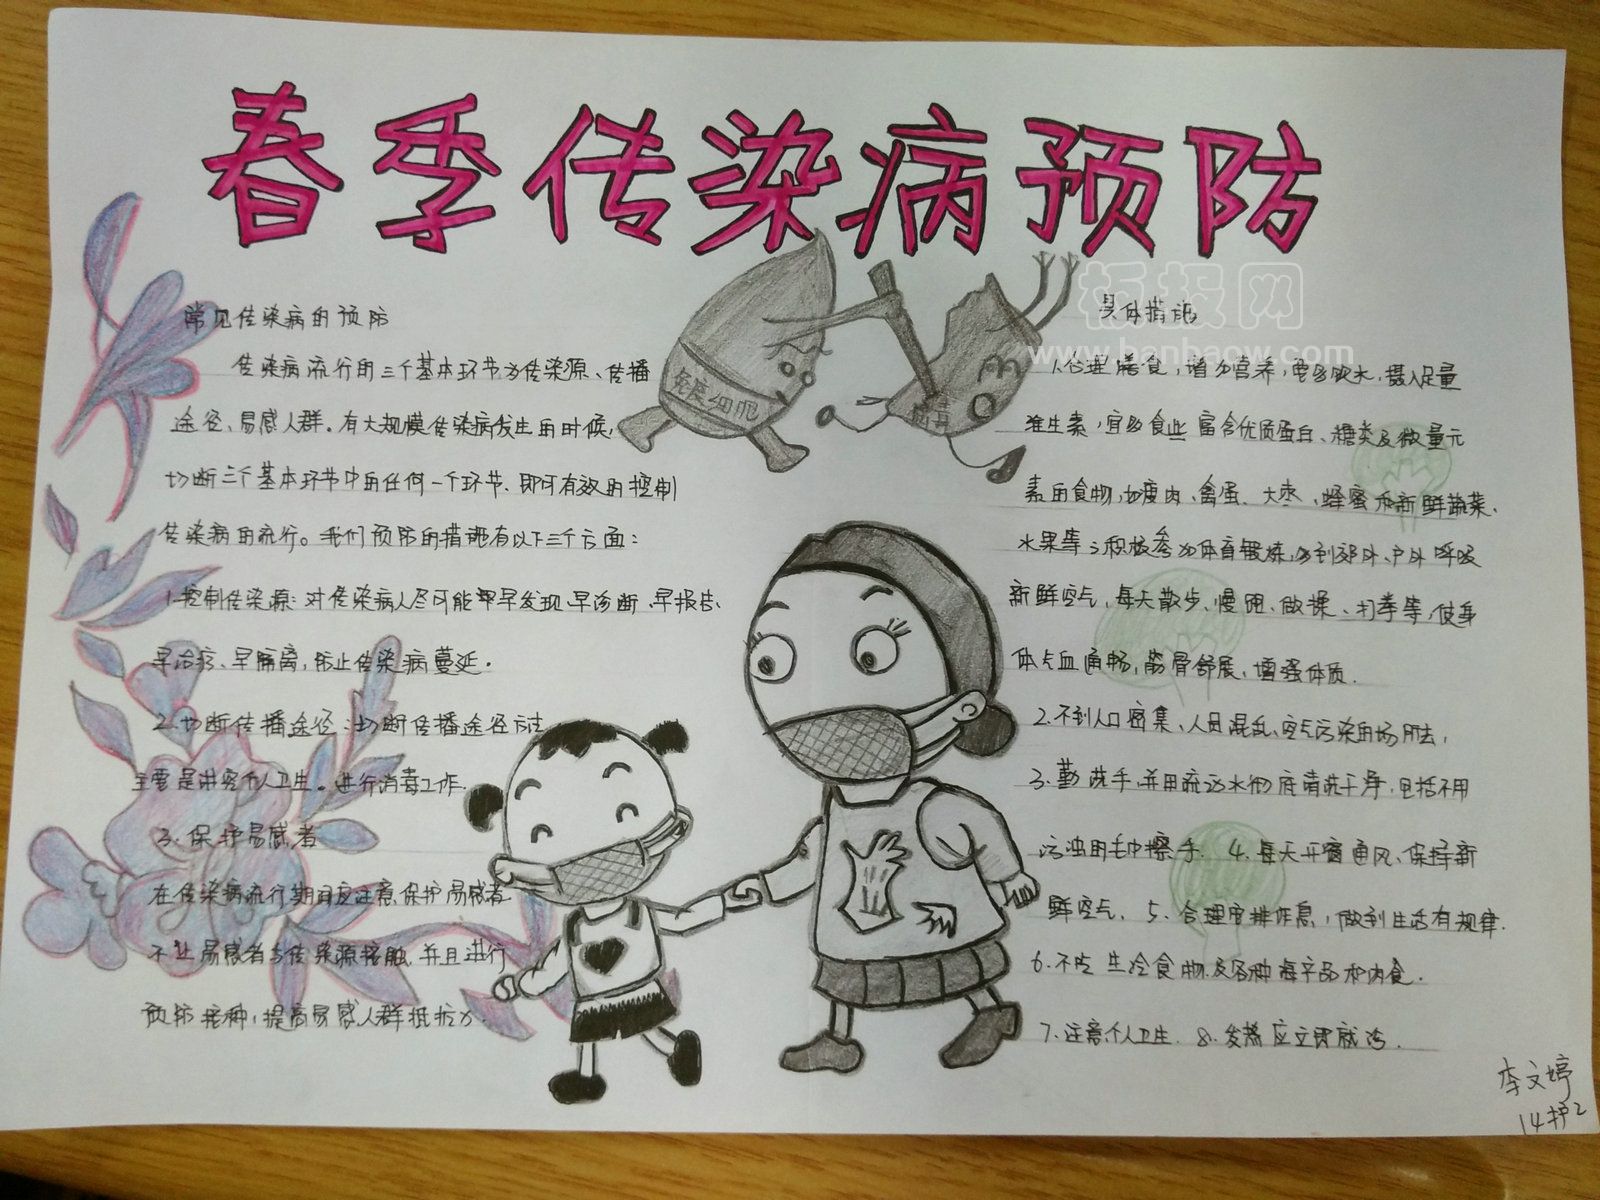 春季传染病预防
常见传染病的预防
传染病流行的三个基本环节为传染源、传播
途径、易感人群。有大规模传染病发生的时候,
切断三个基本环节中的任何一个环节、即可有效的控制
传染病的流行。我们预防的措施有以下三个方面:
1.控制传染源:对传染病人尽可能早发现、早诊断、早报告、
早治疗、早隔离,防止传染病蔓延.
2.切断传播途径:切断传播途径方法
主要是讲究个人卫生。进行消毒工作.
3.保护易感者
在传染病流行期间应注意保护易感者
不让易感者与传染源接触,并且进行
预防接种,提高易感人群抵抗力.
免疫细胞
病毒
板报网
www.banbaow.com
具体措施
1.合理膳食,增加营养,要多饮水,摄入足量
维生素,宜多食些富含优质蛋白、糖类及微量元
素的食物,如瘦肉、禽蛋、大枣、蜂蜜和新鲜蔬菜、
水果等;积极参加体育锻炼,多到郊外、户外呼吸
新鲜空气,每天散步、慢跑、做操、打拳等,使身
体气血通畅,筋骨舒展,增强体质.
2.不到人口密集、人员混乱、空气污染的场所去,
3.勤洗手,并用流动水彻底清洗干净,包括不用
污浊的毛巾擦手. 4.每天开窗通风、保持新
鲜空气. 5.合理安排作息,做到生活有规律.
6.不吃生冷食物及各种海产品和肉食.
7.注意个人卫生. 8.发热应立即就诊.
李文婷
14护2